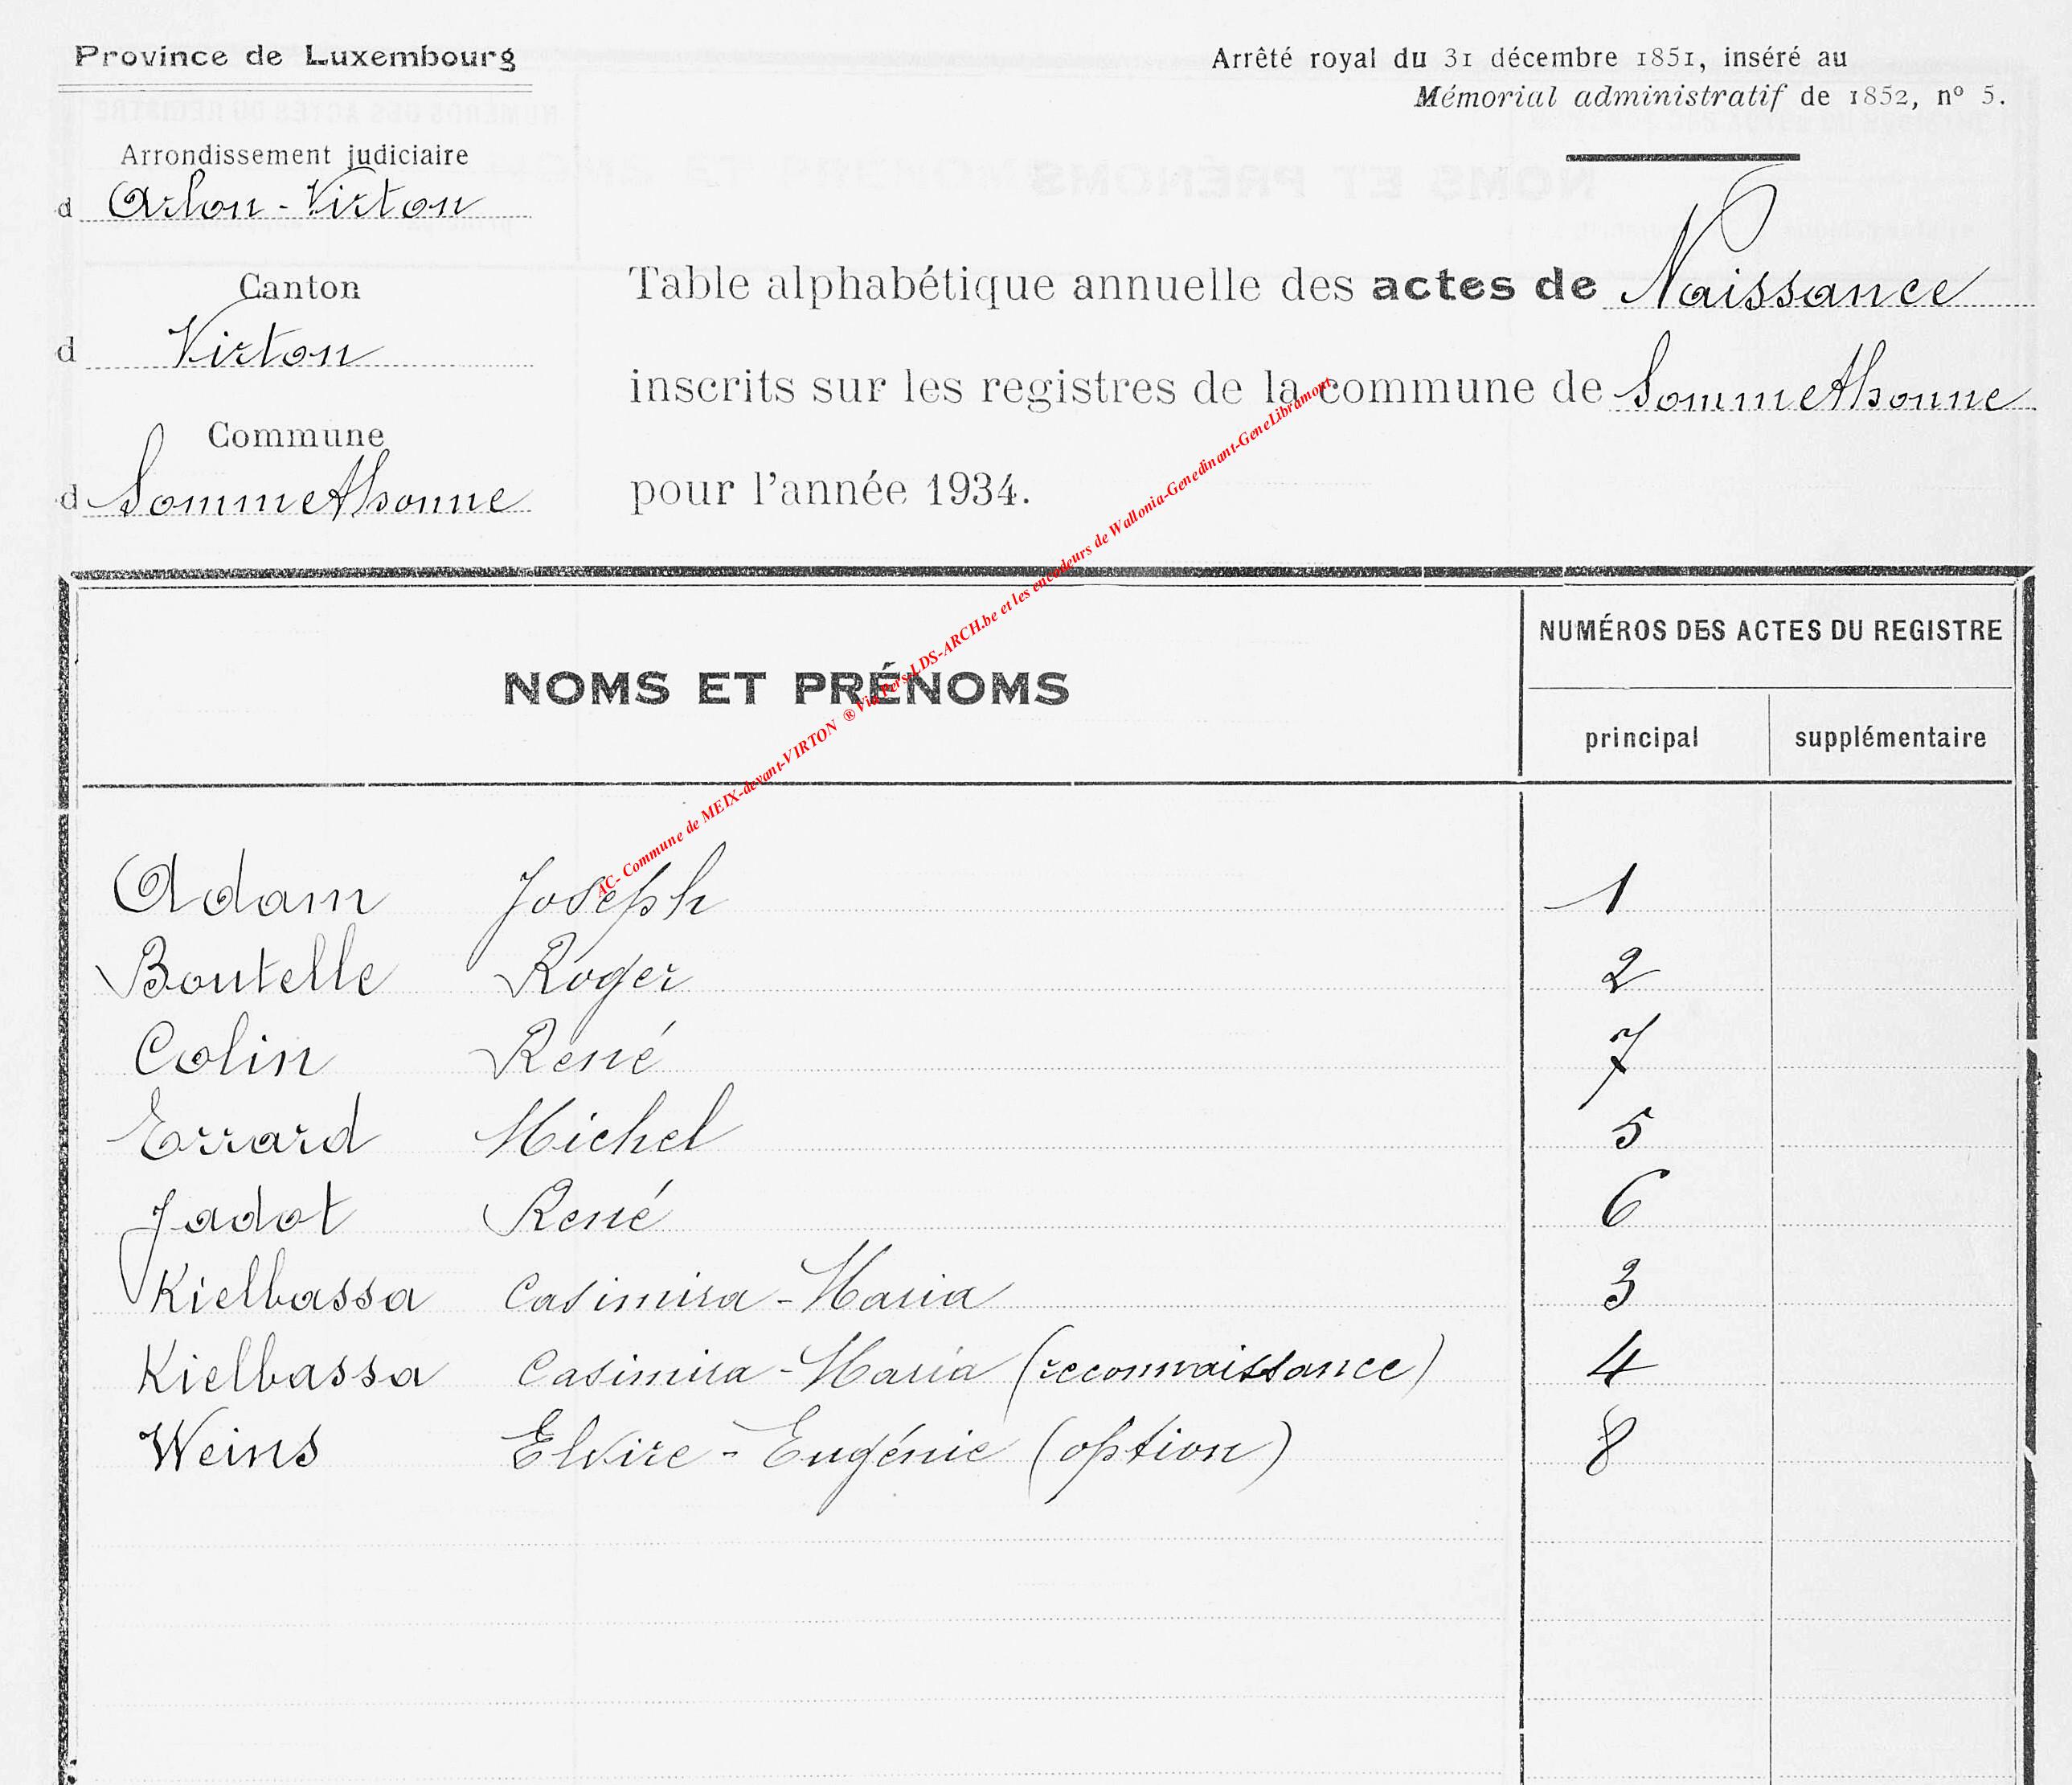 Province de Luxembourg
Arrondissement judiciaire
d Arlon - Virton
Canton
d Virton
Commune
d Sommethonne
Arrêté royal du 31 décembre 1851, inséré au
Mémorial administratif de 1852, nº 5.
Table alphabétique annuelle des actes de Naissance
inscrits sur les registres de la commune de Sommethonne
pour l'année 1934.
AC- Commune de MEIX-devant-VIRTON ® Via Pers-LDS-ARCH.be et les encodeurs de Wallonia-Genedinant-GeneLibramont
NOMS ET PRÉNOMS
NUMÉROS DES ACTES DU REGISTRE
principal supplémentaire
Adam Joseph 1
Boutelle Roger 2
Colin René 7
Errard Michel 5
Jadot René 6
Kielbassa Casimira - Maria 3
Kielbassa Casimira - Maria (reconnaissance) 4
Weins Elvire - Eugénie (option) 8